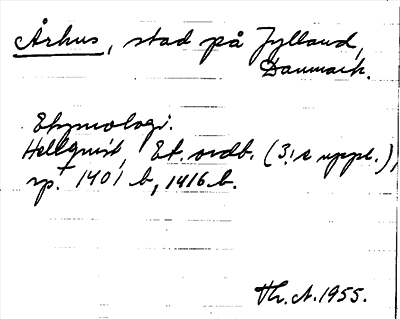 Århus, stad på Jylland,
Danmark.
Etymologi.
Hellquist, Et. ordb. (3:e uppl.),
sp. 1401 b, 1416 b.
Th. A. 1955.